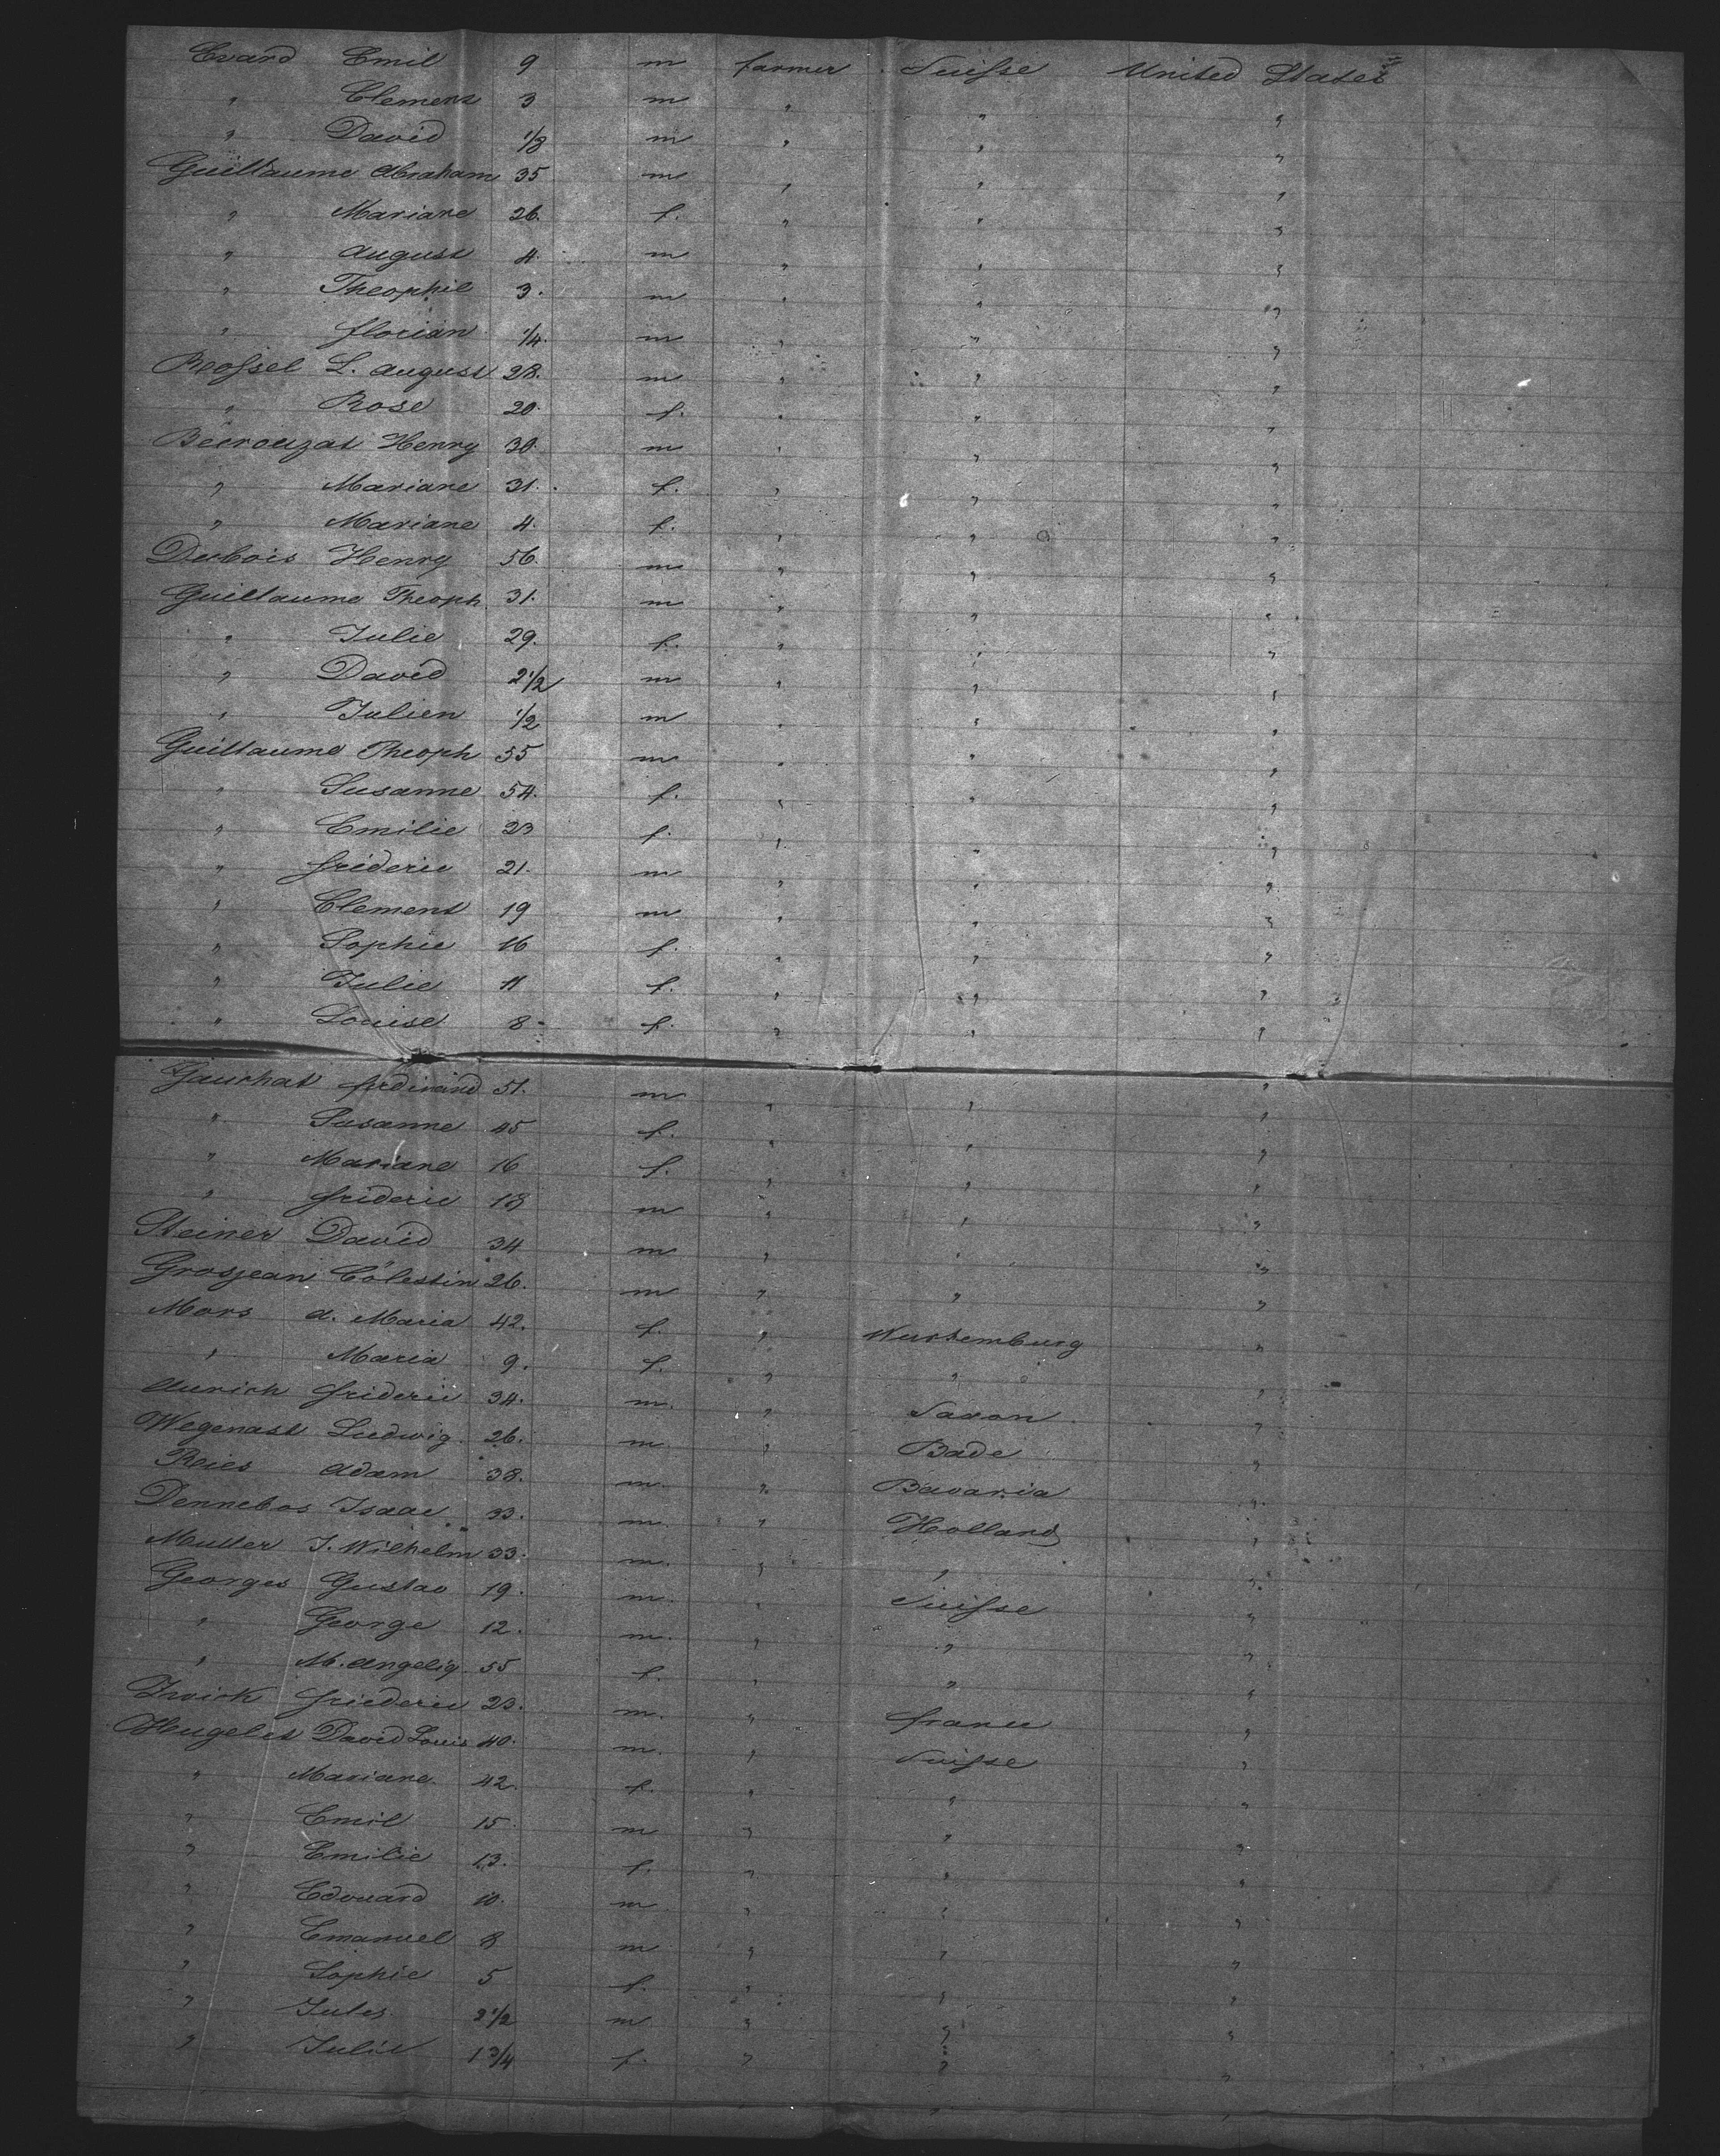 Evard Emil 9 m farmer Suisse United States
" Clement 3 m " " "
" David 1/8 m " " "
Guillaume Abraham 35 m " " "
" Mariane 26. f. " " "
" August 4. m " " "
" Theophil 3. m " " "
" florian 1/4. m " " "
Rossel L. August 28. m " " "
" Rose 20. f. " " "
Henry 30. m " " "
" Mariane 31. f. " " "
" Mariane 4. f. " " "
Dubois Henry 56. m " " "
Guillaume Theoph 31. m " " "
" Julie 29. f. " " "
" David 2 1/2 m " " "
" Julien 1/2 m " " "
Guillaume Theoph 55 m " " "
" Susanne 54. f. " " "
" Emilie 23 f. " " "
" frideric 21. m " " "
" Clement 19 m " " "
" Sophie 16 f. " " "
" Julie 11 f. " " "
" Louise 8 f. " " "
Gauchat ferdinand 51. m " " "
" Susanne 45 f. " " "
" Mariane 16 f. " " "
" frideric 18 m " " "
Steiner David 34 m " " "
Grosjean Cölestin 26. m " " "
Mors A. Maria 42. f. " Wurtemburg "
" Maria 9. f. " " "
Aurich frideric 34. m. " Saxon "
Wegenast Ludwig 26. m. " Bade "
Reies Adam 38. m. " Bavaria "
Dennebos Isaac 33. m. " Holland "
Muller J. Wilhelm 33. m. " " "
Georges Gustav 19. m. " Suisse "
" George 12. m. " " "
" M. Angeliq 55 f. " " "
friederic 23. m. " france "
Hugelet David Louis 40. m. " Suisse "
" Mariane 42. f. " " "
" Emil 15. m " " "
" Emilie 13. f. " " "
" Edouard 10. m " " "
" Emanuel 8 m " " "
" Sophie 5 f. " " "
" Jules 2 1/2 m " " "
" Julie 1 3/4 f. " " "